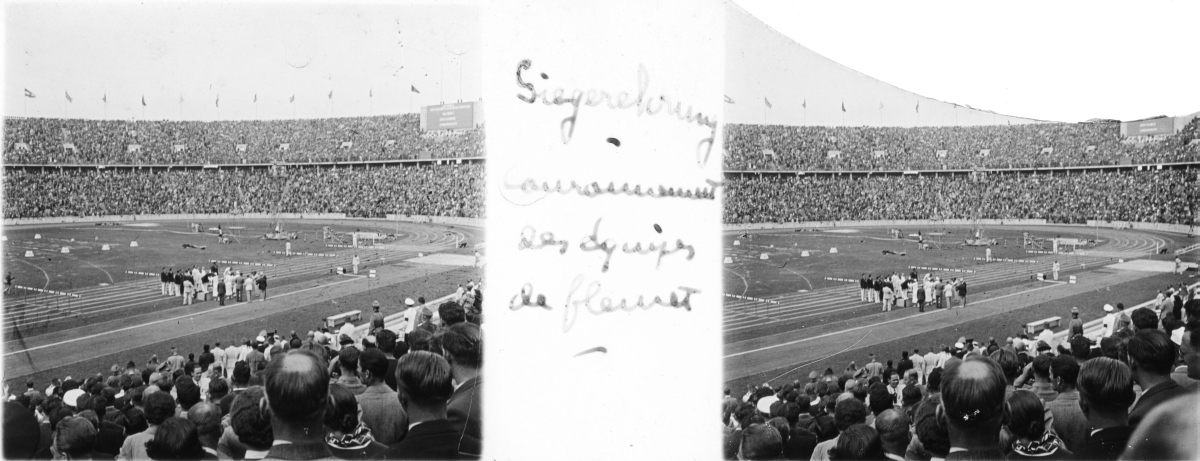 Siegerehrung
Couronnement
des équipes
de fleuret